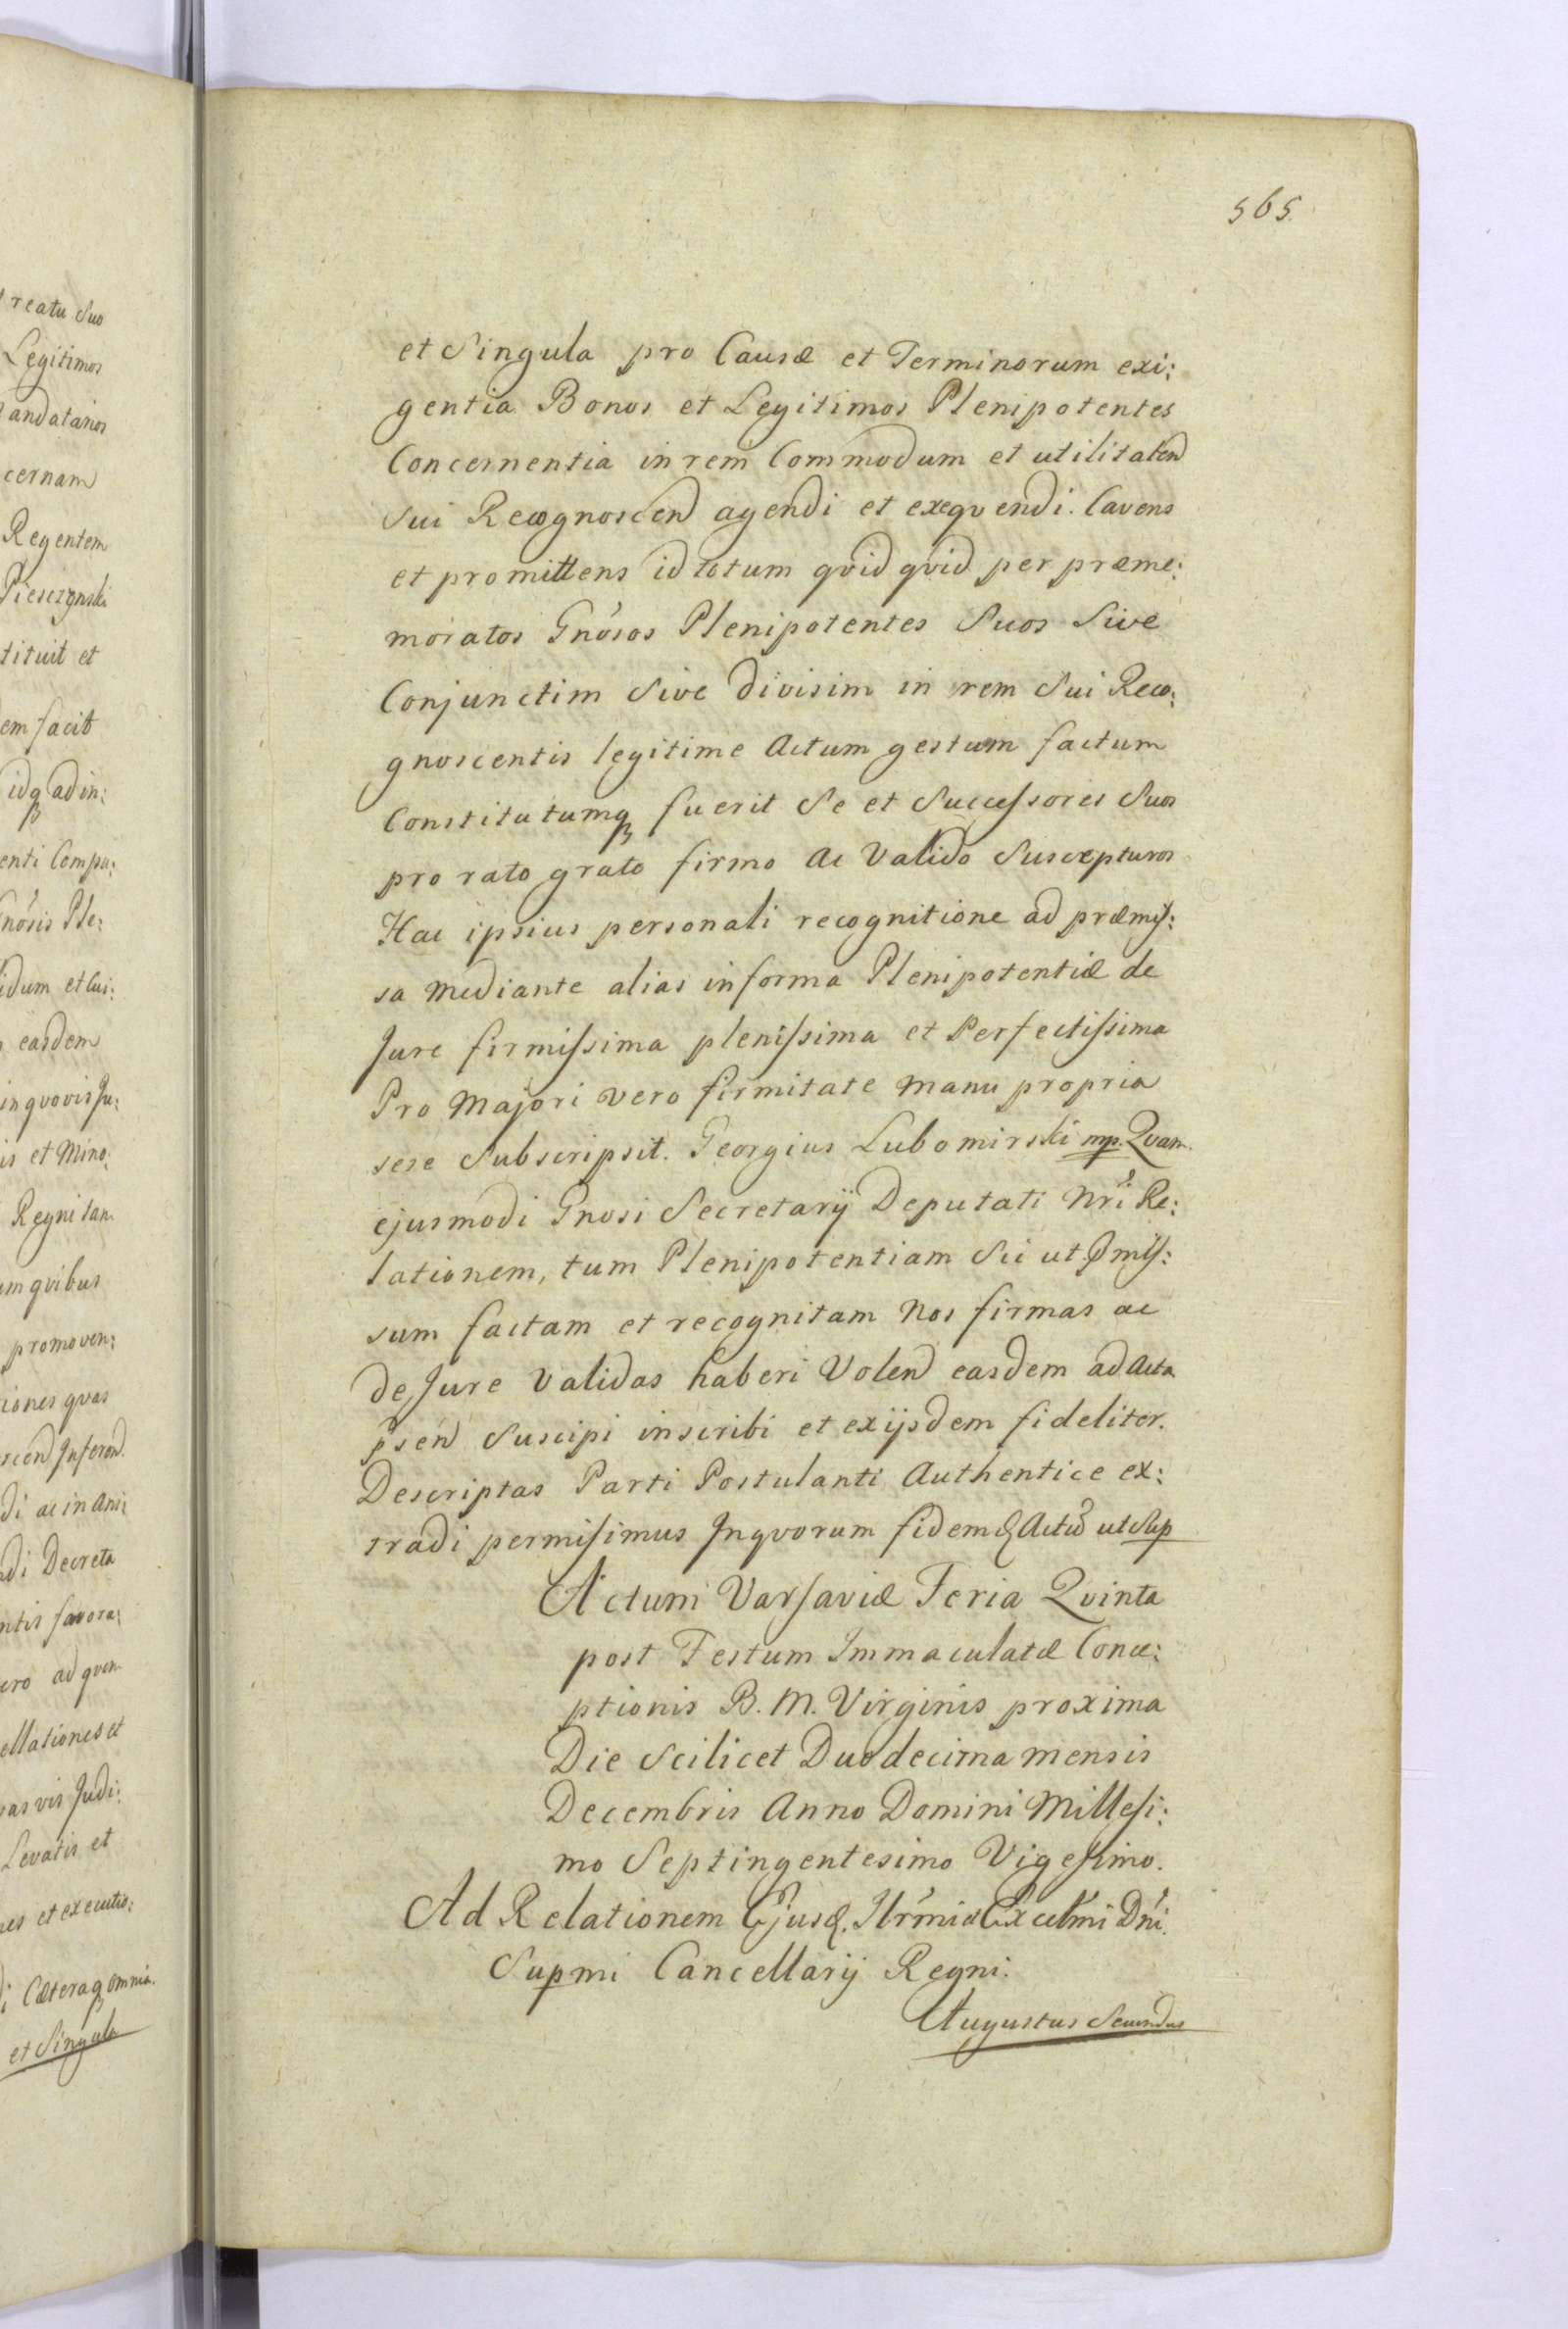 reatu Suo
Legitimos
andatarios
cernam
Regentem
Piesczynski
tituit et
em facit
idq adin:
enti Compa:
Gnosis Ple:
idum et Cui:
easdem
in quovis Ju:
is et Mino:
Regni tan
um quibus
promoven:
tiones quas
scend Inferend.
di ac in Ani:
ndi Decreta
ntis favora:
ero ad quem
ellationes et
as vis Judi:
Levatis et
nes et executio:
di Cæteraq omnia
et Singula
565.
et Singula pro Causæ et Terminorum exi:
gentia Bonos et Legitimos Plenipotentes
Concernentia in rem Commodum et utilitatem
Sui Recognoscend agendi et exequendi. Cavens
et promittens id totum quid quid per præme:
moratos Gnósos Plenipotentes Suos Sive
Conjunctim Sive divisim in rem Sui Reco:
gnoscentis legitime Actum gestum factum
Constitutumq fuerit Se et Successores Suos
pro rato grato firmo Ac Valido Suscepturos
Hac ipsius personali recognitione ad præmis:
sa Mediante alias in forma Plenipotentiæ de
Jure firmissima plenissima et Perfectissima
Pro Majori vero firmitate Manu propria
sese Subscripsit. Georgius Lubomirski mp. Quam
ejusmodi Gnosi Secretarij Deputati Nri Re:
lationem, tum Plenipotentiam Sic ut pmis:
sum factam et recognitam Nos firmas ac
de Jure Validas haberi Volend easdem ad Acta
psen Suscipi inscribi et exijsdem fideliter.
Descriptas Parti Postulanti Authentice ex:
tradi permisimus Inquorum fidem & Actu ut Sup
Actum Varsaviæ Feria Quinta
post Festum Immaculatæ Conce:
ptionis B. M. Virginis proxima
Die Scilicet Duodecima mensis
Decembris Anno Domini Millesi:
mo Septingentesimo Vigesimo.
Ad Relationem Ejusd. Illrmi et Excellmi Dni.
Supmi Cancellarij Regni.
Augustus Secundus